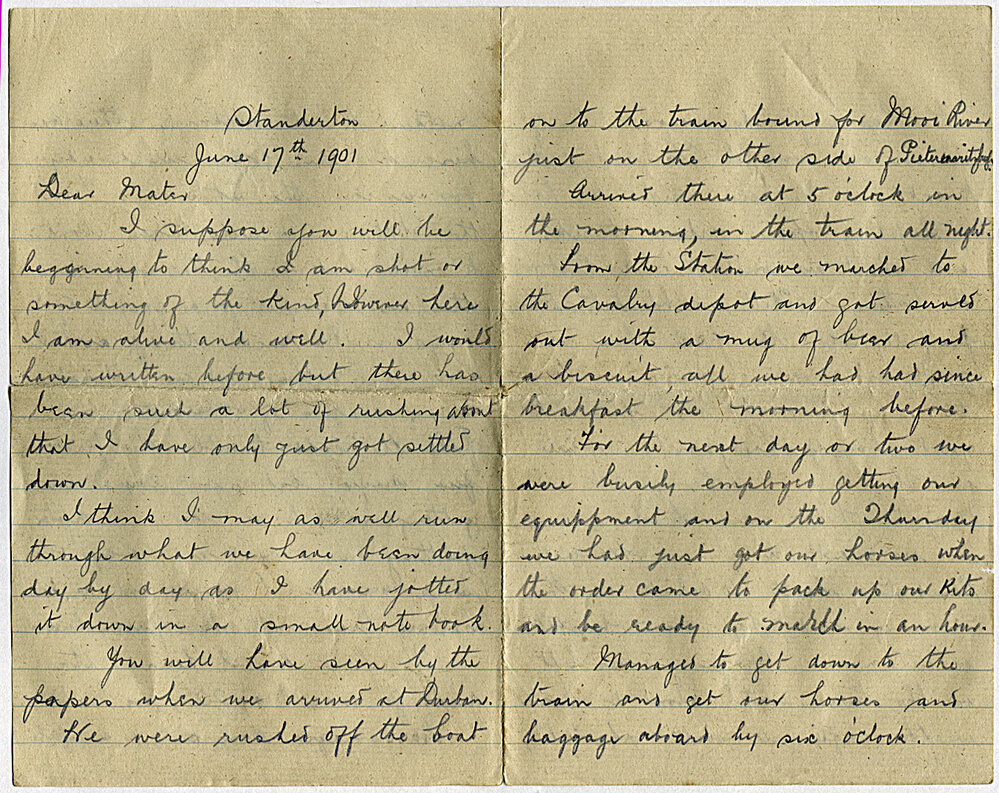 Standerton
June 17th 1901
Dear Mater
I suppose you will be
beggining to think I am shot or
something of the kind, However here
I am alive and well. I would
have written before but there has
been such a lot of rushing about
that I have only just got settled
down.
I think I may as well run
through what we have been doing
day by day as I have jotted
it down in a small note book.
You will have seen by the
papers when we arrived at Durban.
We were rushed off the boat
on to the train bound for Mooi River
just on the other side of Pietermaritzburg.
Arrived there at 5 o'clock in
the morning, in the train all night.
From the Station we marched to
the Cavalry depot and got served
out with a mug of beer and
a biscuit, all we had had since
breakfast the morning before.
For the next day or two we
were busily employed getting our
equippment and on the Thursday
we had just got our horses when
the order came to pack up our Kits
and be ready to march in an hour.
Managed to get down to the
train and get our horses and
baggage aboard by six o'clock.